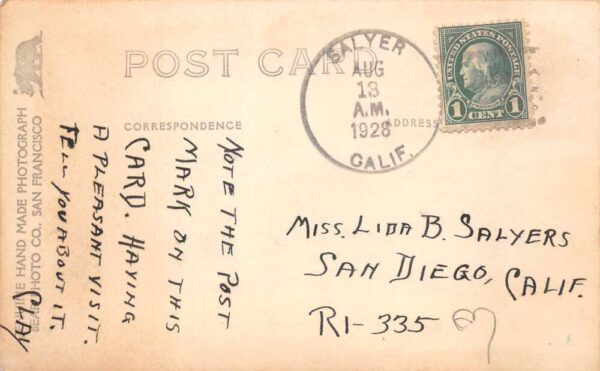 POST CARD
CORRESPONDENCE
ADDRESS
SALYER
AUG
13
A.M.
1928
CALIF.
UNITED STATES POSTAGE
FRANKLIN
1 CENT 1
NOTE THE POST
MARK ON THIS
CARD. HAVING
A PLEASANT VISIT.
TELL YOU ABOUT IT.
CLAY
MISS. LIDA B. SALYERS
SAN DIEGO, CALIF.
R1-335
HAND MADE PHOTOGRAPH
PHOTO CO. SAN FRANCISCO